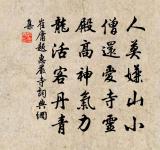 人莫嫌山小
僧還愛寺靈
殿高神氣力
龍活客丹青
崔庸題惠嚴寺詞典網
集